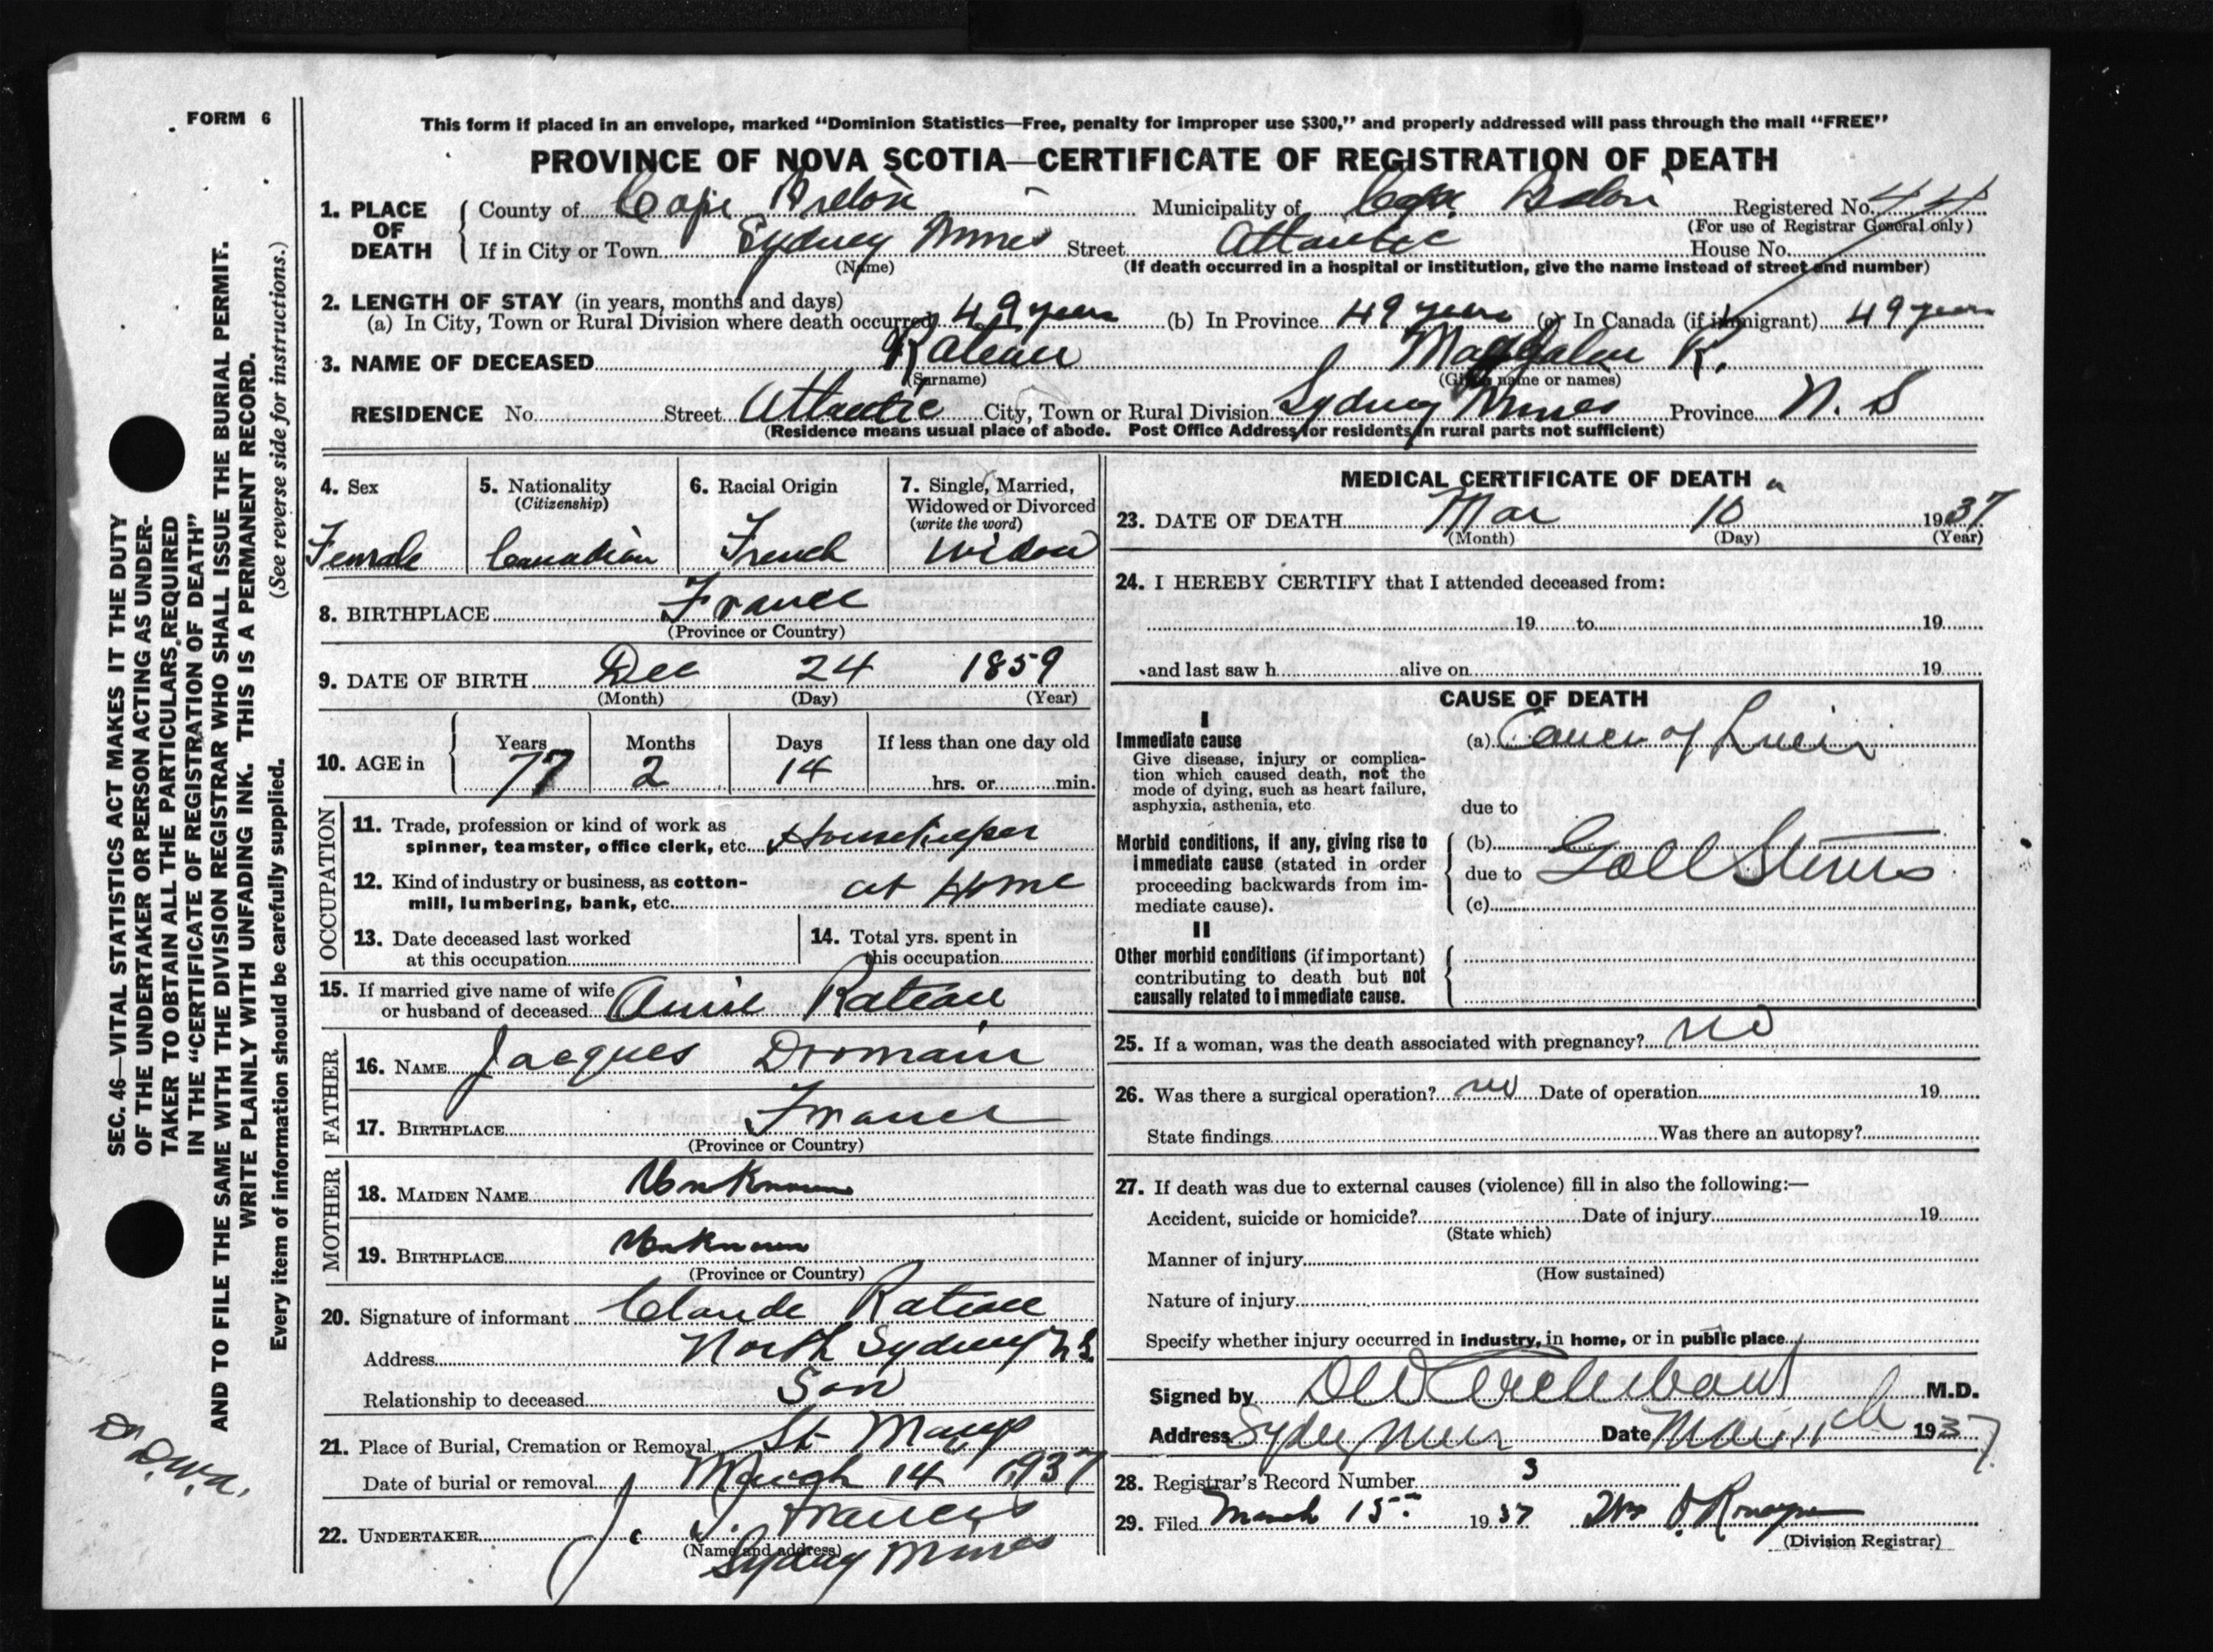 FORM 6
This form if placed in an envelope, marked "Dominion Statistics—Free, penalty for improper use $300," and properly addressed will pass through the mail "FREE"
PROVINCE OF NOVA SCOTIA—CERTIFICATE OF REGISTRATION OF DEATH
1. PLACE OF DEATH County of Cape Breton Municipality of Cape Breton Registered No. 44
(For use of Registrar General only)
If in City or Town Sydney Mines Street Atlantic House No.
(Name) (If death occurred in a hospital or institution, give the name instead of street and number)
2. LENGTH OF STAY (in years, months and days)
(a) In City, Town or Rural Division where death occurred 49 years (b) In Province 49 years (c) In Canada (if immigrant) 49 years
3. NAME OF DECEASED Rateau Magdalen R.
(Surname) (Given name or names)
RESIDENCE No. Street Atlantic City, Town or Rural Division Sydney Mines Province N. S
(Residence means usual place of abode. Post Office Address for residents in rural parts not sufficient)
4. Sex Female
5. Nationality (Citizenship) Canadian
6. Racial Origin French
7. Single, Married, Widowed or Divorced (write the word) Widow
8. BIRTHPLACE France
(Province or Country)
9. DATE OF BIRTH Dec 24 1859
(Month) (Day) (Year)
10. AGE in Years 77 Months 2 Days 14 If less than one day old
hrs. or min.
OCCUPATION
11. Trade, profession or kind of work as
spinner, teamster, office clerk, etc. Housekeeper
12. Kind of industry or business, as cotton-
mill, lumbering, bank, etc. at Home
13. Date deceased last worked
at this occupation
14. Total yrs. spent in
this occupation
15. If married give name of wife
or husband of deceased Rateau
FATHER
16. NAME Jacques Dromain
17. BIRTHPLACE France
(Province or Country)
MOTHER
18. MAIDEN NAME Unknown
19. BIRTHPLACE Unknown
(Province or Country)
20. Signature of informant Claude Rateau
Address North Sydney N.S.
Relationship to deceased Son
21. Place of Burial, Cremation or Removal St Marys
Date of burial or removal March 14 1937
22. UNDERTAKER J. J. Francis
(Name and address)
Sydney Mines
MEDICAL CERTIFICATE OF DEATH
23. DATE OF DEATH Mar 10 1937
(Month) (Day) (Year)
24. I HEREBY CERTIFY that I attended deceased from:
19 to 19
and last saw h alive on 19
CAUSE OF DEATH
I
Immediate cause (a) Cancer of Liver
Give disease, injury or complica-
tion which caused death, not the
mode of dying, such as heart failure,
asphyxia, asthenia, etc
due to
Morbid conditions, if any, giving rise to
immediate cause (stated in order
proceeding backwards from im-
mediate cause).
(b)
due to Gall Stones
(c)
II
Other morbid conditions (if important)
contributing to death but not
causally related to immediate cause.
25. If a woman, was the death associated with pregnancy? no
26. Was there a surgical operation? no Date of operation 19
State findings Was there an autopsy?
27. If death was due to external causes (violence) fill in also the following:—
Accident, suicide or homicide? Date of injury 19
(State which)
Manner of injury
(How sustained)
Nature of injury
Specify whether injury occurred in industry, in home, or in public place
Signed by D W Archibald M.D.
Address Sydney Mines Date Mar 11th 1937
28. Registrar's Record Number 3
29. Filed March 15th 1937
(Division Registrar)
SEC. 46—VITAL STATISTICS ACT MAKES IT THE DUTY
OF THE UNDERTAKER OR PERSON ACTING AS UNDER-
TAKER TO OBTAIN ALL THE PARTICULARS REQUIRED
IN THE "CERTIFICATE OF REGISTRATION OF DEATH"
AND TO FILE THE SAME WITH THE DIVISION REGISTRAR WHO SHALL ISSUE THE BURIAL PERMIT.
WRITE PLAINLY WITH UNFADING INK. THIS IS A PERMANENT RECORD.
Every item of information should be carefully supplied. (See reverse side for instructions.)
Dr D.W.A.